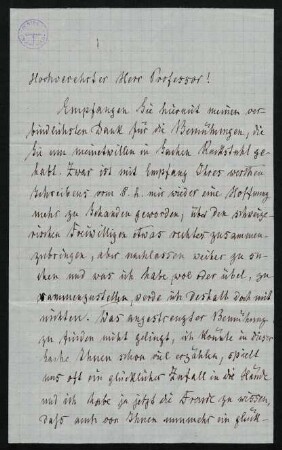 Hochverehrter Herr Professor!
Empfangen Sie hiermit meinen ver-
bindlichsten Dank für die Bemühungen, die
Sie um meinetwillen in Sachen Rockstuhl ge-
habt. Zwar ist mit Empfang Ihres werthen
Schreibens vom 18. h. mir wieder eine Hoffnung
mehr zu Schanden geworden, über den schweize-
rischen Freiwilligen etwas rechtes zusammen-
zubringen, aber nachlassen weiter zu su-
chen und was ich habe wol oder übel, zu-
sammenzustellen, werde ich deshalb doch mit
nichten. Was angestrengter Bemühung
zu finden nicht gelingt, ich könnte in dieser
Sache Ihnen schon viel erzählen, spielt
uns oft ein glücklicher Zufall in die Hände
und ich habe ja jetzt die Freude zu wissen,
daß auch von Ihnen nunmehr ein glück-